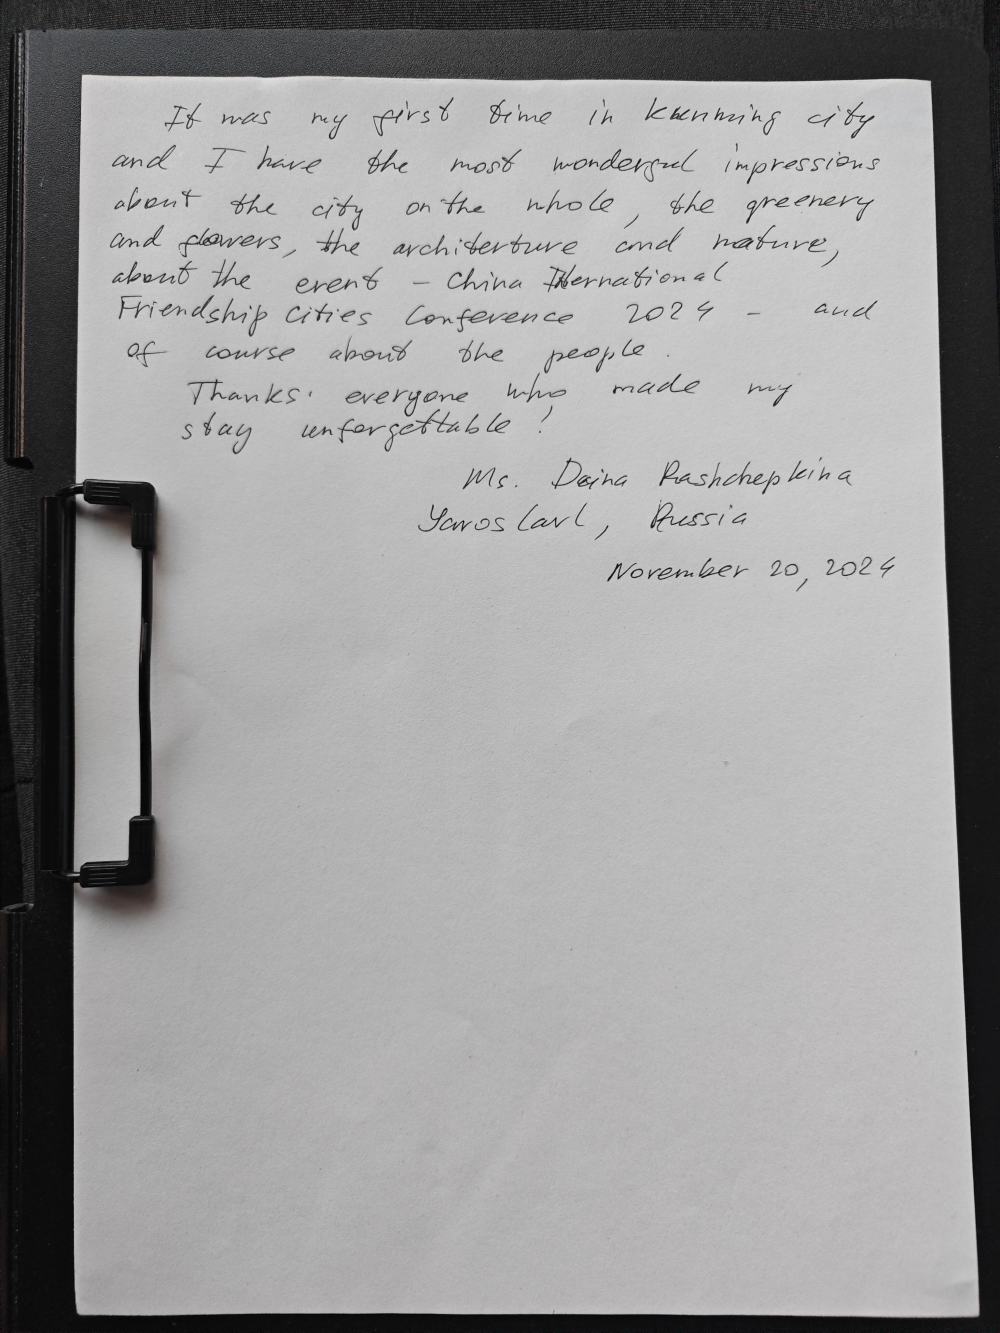 It was my first time in Kunming city
and I have the most wonderful impressions
about the city on the whole, the greenery
and flowers, the architecture and nature,
about the event – China International
Friendship Cities Conference 2024 – and
of course about the people.
Thanks everyone who made my
stay unforgettable!
Ms. Daina Rashchepkina
Yaroslavl, Russia
November 20, 2024